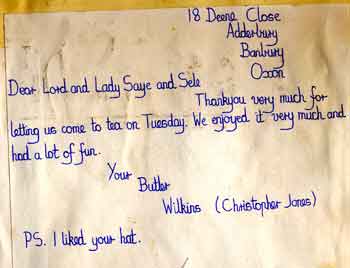 18 Deene Close
Adderbury
Banbury
Oxon
Dear Lord and Lady Saye and Sele
Thankyou very much for
letting us come to tea on Tuesday. We enjoyed it very much and
had a lot of fun.
Your
Butler
Wilkins (Christopher Jones)
PS. I liked your hat.